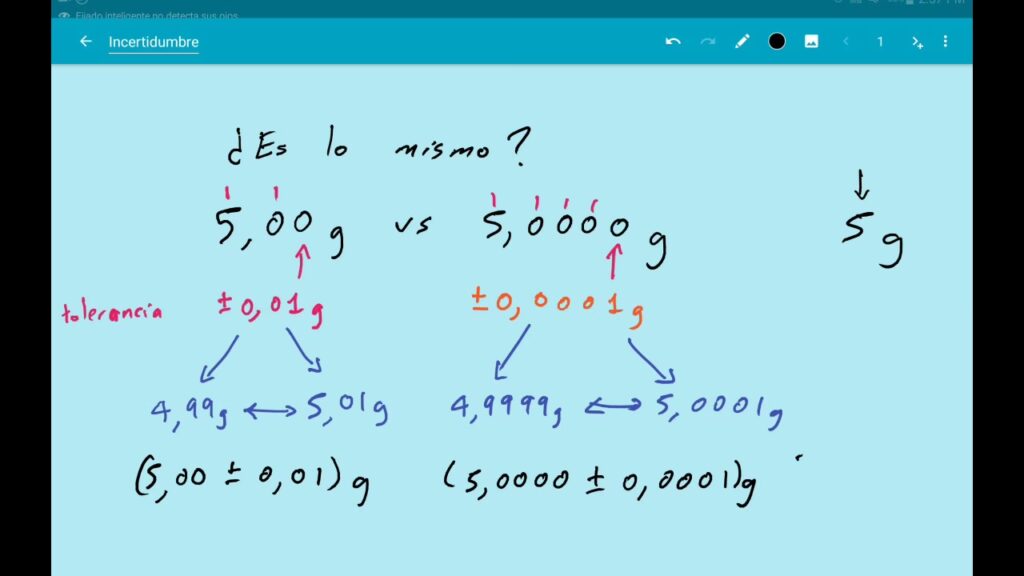 Fijado inteligente no detecta sus ojos
2:57 PM
Incertidumbre
1
¿Es lo mismo?
5,00g vs 5,0000g 5g
tolerancia ±0,01g ±0,0001g
4,99g ↔ 5,01g 4,9999g ↔ 5,0001g
(5,00 ± 0,01)g (5,0000 ± 0,0001)g